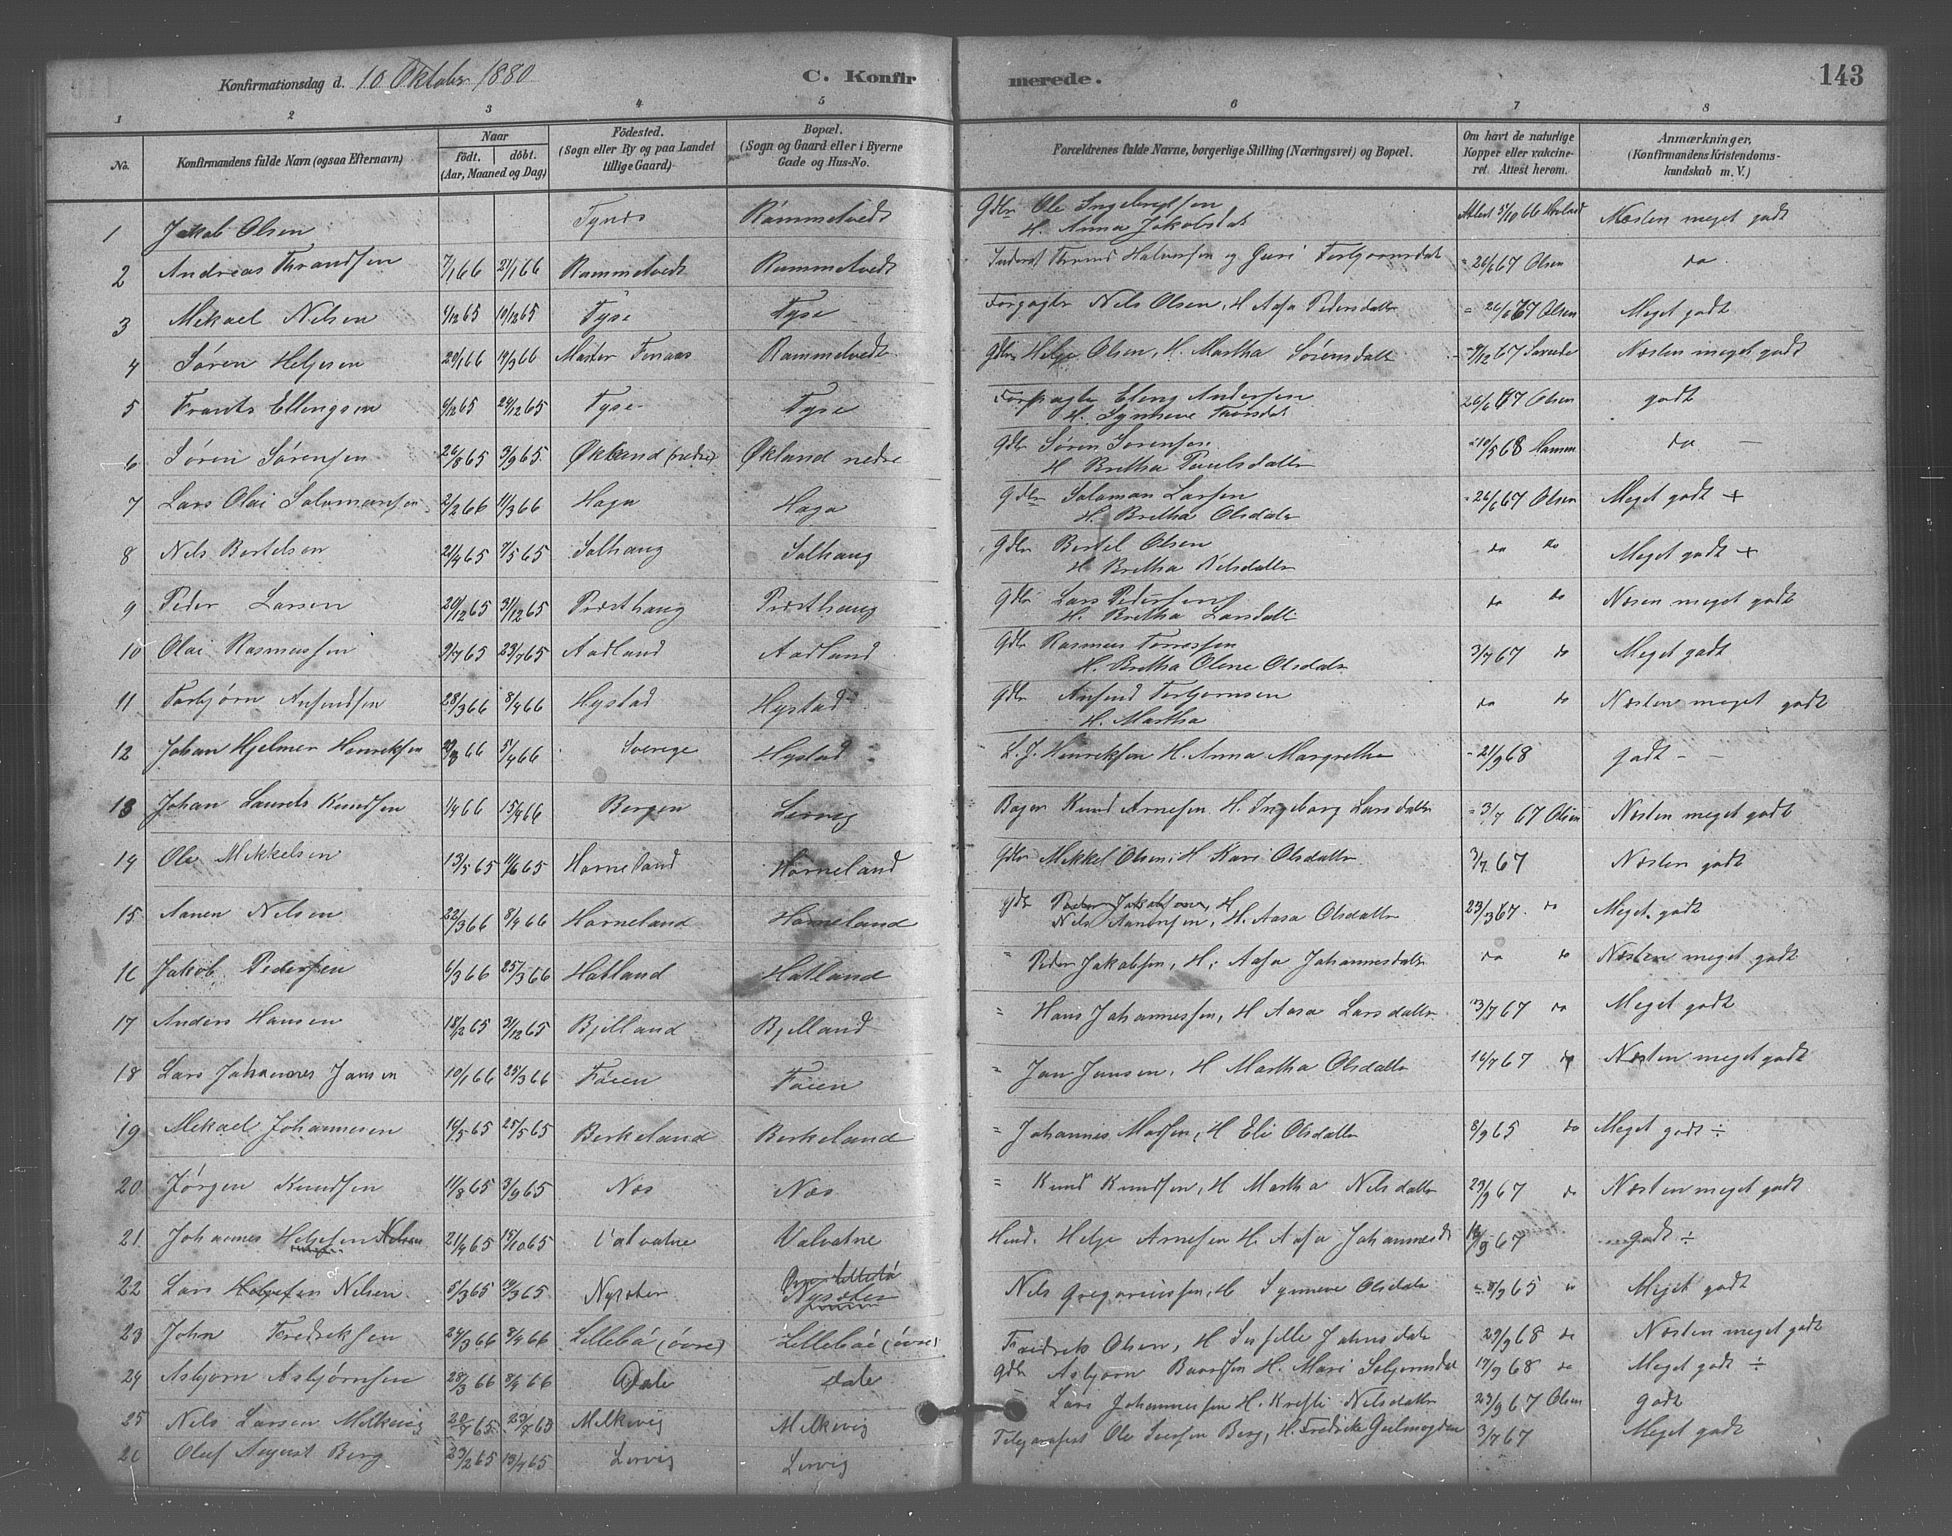 Konfirmationsdag d. 10 Oktober 1880 C. Konfirmerede. 143
1 2 3 4 5 6 7 8
No. Konfirmandens fulde Navn (ogsaa Efternavn) Naar födt. döbt. (Aar, Maaned og Dag) Födested. (Sogn eller By og paa Landet tillige Gaard) Bopæl. (Sogn og Gaard eller i Byerne Gade og Hus-No. Forældrenes fulde Navne, borgerlige Stilling (Næringsvei) og Bopæl. Om havt de naturlige Kopper eller vakcineret. Attest herom. Anmærkninger. (Konfirmandens Kristendomskundskab m. V.)
1 Jakob Olsen Tynes Rammetvedt Gdbr Ole Ingebrigtsen
H. Anna Jakobsdat Attest 5/10 66 Næsten meget godt
2 Andreas Thrandsen 7/1 66 21/1 66 Rammetvedt Rammetvedt Inderst Thrond Halvorsen og Guri Torbjørnsdat 26/6 67 Olsen do
3 Mikael Nilsen 6/12 65 10/12 65 Tyse Tyse Forpagter Nils Olsen, H Aasa Pedersdatter = 26/6 67 Olsen Meget godt
4 Søren Heljesen 20/1 66 19/3 66 Rammetvedt Gdbr Helje Olsen, H. Martha Sørensdatter 9/12 67 Næsten meget godt
5 Frants Ellingsen 6/12 65 24/12 65 Tyse Tyse Forpagter Eling Andersen
H. Synneve 26/6 67 Olsen godt
6 Søren Sørensen 26/8 65 3/9 65 Økland (nedre) Økland nedre Gdbr Søren Sørensen
H Brettha Paulsdatter = 10/5 68 Hansen do —
7 Lars Olai Salamonsen 2/2 66 11/3 66 Haga Haga Gdbr Salamon Larsen
H. Bretha Olsdatter = 26/6 67 Olsen Meget godt +
8 Nils Bertelsen 21/4 65 7/5 65 Solhaug Solhaug Gdbr Bertel Olsen
H Bretha Nilsdatter do do Meget godt +
9 Peder Larsen 20/12 65 31/12 65 Præsthaug Præsthaug Gdbr Lars Pedersen
H. Bretha Larsdatter do do Næsen meget godt
10 Olai Rasmussen 2/7 65 23/7 65 Aadland Aadland Gdbr Rasmus Torresen
H. Bretha Oline Olsdatter 3/7 67 do Meget godt
11 Torbjørn Ansundsen 28/3 66 8/4 66 Hystad Hystad Gdbr Ansund Torbjørnsen
H. Martha do do Næsten meget godt
12 Johan Hjelmer Henriksen 66 5/4 66 Sverige Hystad L. J. Henriksen H. Anna Margretha = 21/9 68 godt - -
13 Johan Laurits Knudsen 1/4 66 15/4 66 Bergen Lervig Bager Knud Arnesen H. Ingeborg Larsdatter = 3/7 67 Olsen Næsten meget godt
14 Ole Mikkelsen 13/5 65 11/6 65 Horneland Horneland Gdbr Mikkel Olsen, H Kari Olsdatter 3/7 67 Næsten godt
15 Aanen Nilsen 22/3 66 8/4 66 Horneland Horneland gdbr Peder Jakobsen, H
Nils Aanensen, H. Aasa Olsdatter 23/3 67 do Meget godt
16 Jakob Pedersen 6/3 66 25/3 66 Hatland Hatland " Peder Jakobsen, H. Aasa Johannesdatter do do Næsten meget godt
17 Anders Hansen 18/12 65 31/12 65 Bjelland Bjelland = Hans Johannessen, H Aasa Larsdatter 3/7 67 do Meget godt
18 Lars Johannes Jansen 10/1 66 25/3 66 Føien Føien " Jan Jansen, H Martha Olsdatter 16/7 67 do Næsten meget godt
19 Mikael Johannesen 14/5 65 25/5 65 Berkeland Berkeland = Johannes Madsen, H Eli Olsdatter 8/9 65 do Meget godt ÷
20 Jørgen Knudsen 11/8 65 3/9 65 Næs Næs = Knud Knudsen, H Martha Nilsdatter 29/9 67 do Næsten meget godt
21 Johannes Heljesen Nilsen 21/4 65 15/10 65 Valvatne Valvatne Helje Arnesen H. Aasa Johannesdt /9 67 godt ÷
22 Lars Heljesen Nilsen 5/3 65 19/3 65 Nysæter Nysæter Nils Gregoriussen, H Synneve Olsdatter 8/9 65 " Meget godt
23 John Fredriksen 24/3 66 8/4 66 Lillebø (øvre) Lillebø (øvre) Fredrik Olsen, H Johnsdatter 29/9 68 do Næsten meget godt
24 Asbjørn Asbjørnsen 28/3 66 8/4 66 Dale Dale Gdbr Asbjørn Baardsen H. Mari 17/9 68 do Meget godt ÷
25 Nils Larsen Melkevig 20/7 65 23/7 65 Melkevig Melkevig Lars Johannessen H. Nilsdatter 23/9 67 Olsen godt
26 Oluf August Berg 23/2 65 13/4 65 Lervig Lervig Telegrafist Ole Iversen Berg, H. Fredrike 3/7 67 Meget godt